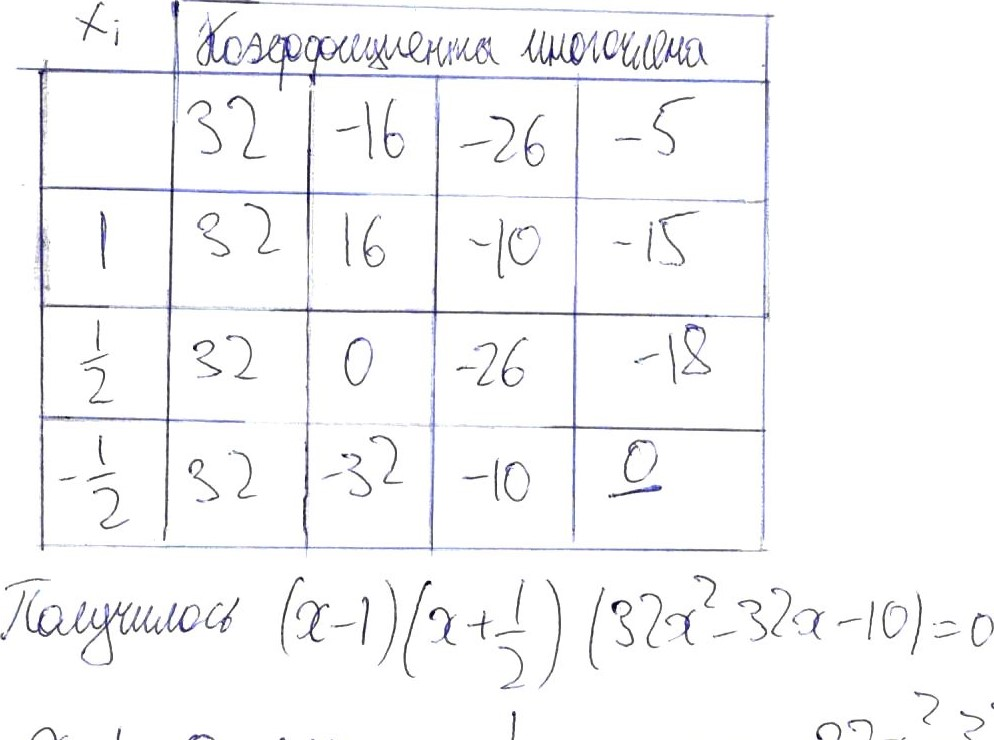 xᵢ Коэффициенты многочлена
32 -16 -26 -5
1 32 16 -10 -15
1/2 32 0 -26 -18
-1/2 32 -32 -10 0
Получилось (x-1)(x+1/2)(32x²-32x-10)=0